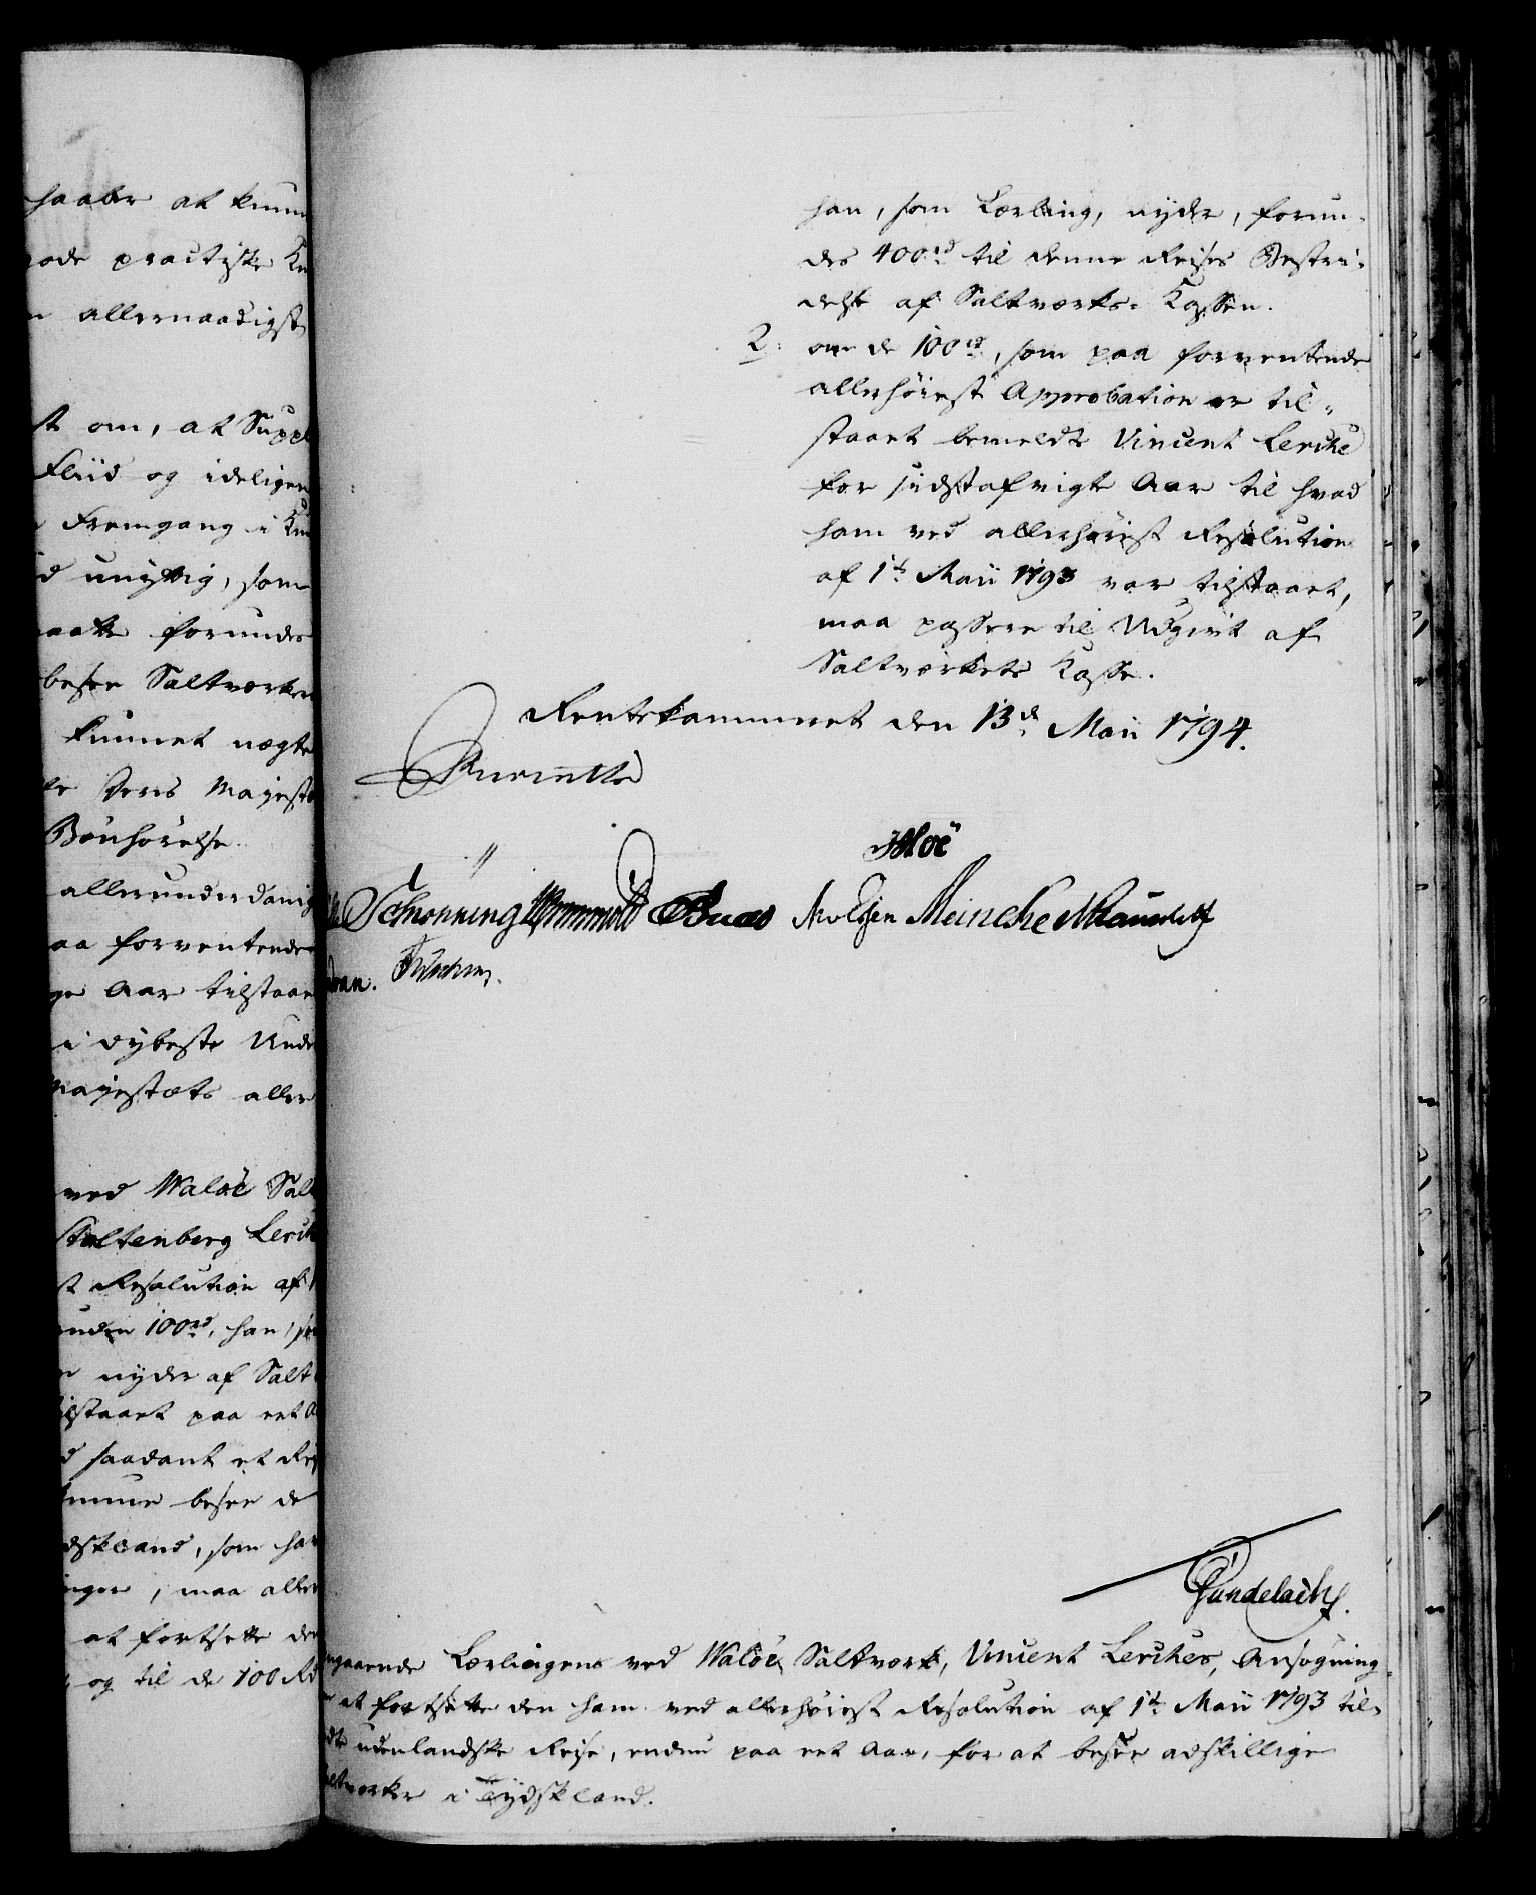 haaber at kunn
ode practiske Kn
allernaadigst
st om, at Suppl
Fliid og idelige
Fremgang i Kun
d unyttig, som
maatte forundes
besee Saltværker
kunnet nægte
Deres Majestæ
Bønhørelse.
allerunderdanig
paa forventende
Aar tilstaae
i dybeste Unde
Majestæts aller
ved Waløe Salt
Stoltenberg Lerch
st Resolution af 1
uden 100 rd, han, som
nyder af Salt
tilstaaet paa eet A
d saadant et Rej
kunne besee de
dskland, som ha
inger, maa aller
at fortsette den
og til de 100 Rd
han, som Lærling, nyder, forun-
des 400 rd til denne Reises Bestri-
delse af Saltværks-Kassen.
2. om de 100 rd, som paa forventende
allerhøiest Approbation er til-
staaet bemeldte Vincent Lerche
for sidstafvigte Aar til hvad
ham ved allerhøiest Resolution
af 1te Maii 1793 var tilstaaet,
maa passere til Udgivt af
Saltværkets Kasse.
Rentekammeret den 13de Maii 1794.
Reventlow
Schønning Wormskiold Buch Meinche
Gundelach
angaaende Lærlingens ved Waløe Saltværk, Vincent Lerches, Ansøgning
at fortsætte den ham ved allerhøiest Resolution af 1te Maii 1793 til-
udenlandske Reise, endnu paa eet Aar, for at besee adskillige
Saltværker i Tydskland.